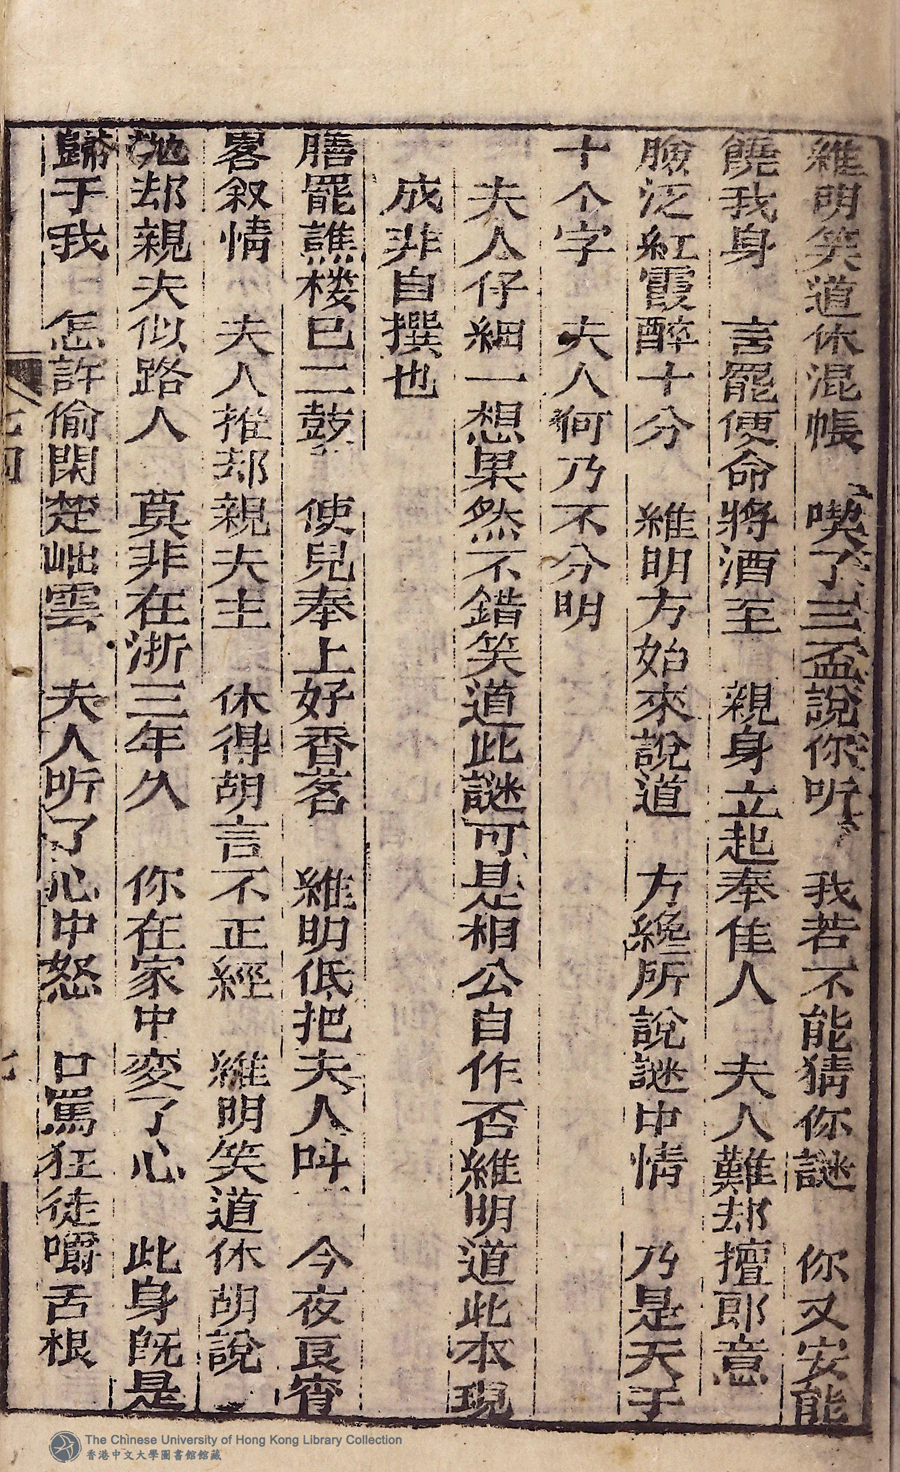 維明笑道休混帳　喫了三盃說你听　我若不能猜你謎　你又安能
饒我身　言罷便命將酒至　親身立起奉佳人　夫人難却擅郎意
臉泛紅霞醉十分　維明方始來說道　方纔所說謎中情　乃是天于
十个字　夫人何乃不分明
夫人仔細一想果然不錯笑道此謎可是相公自作否維明道此本現
成非自撰也
膳罷譙楼已二鼓　使兒奉上好香茗　維明低把夫人叫　今夜良宵
畧叙情　夫人推却親夫主　休得胡言不正經　維明笑道休胡說
抛却親夫似路人　莫非在浙三年久　你在家中变了心　此身旣是
歸于我　怎許偷閑楚岫雲　夫人听了心中怒　口罵狂徒嚼舌根
七四
The Chinese University of Hong Kong Library Collection
香港中文大學圖書館館藏